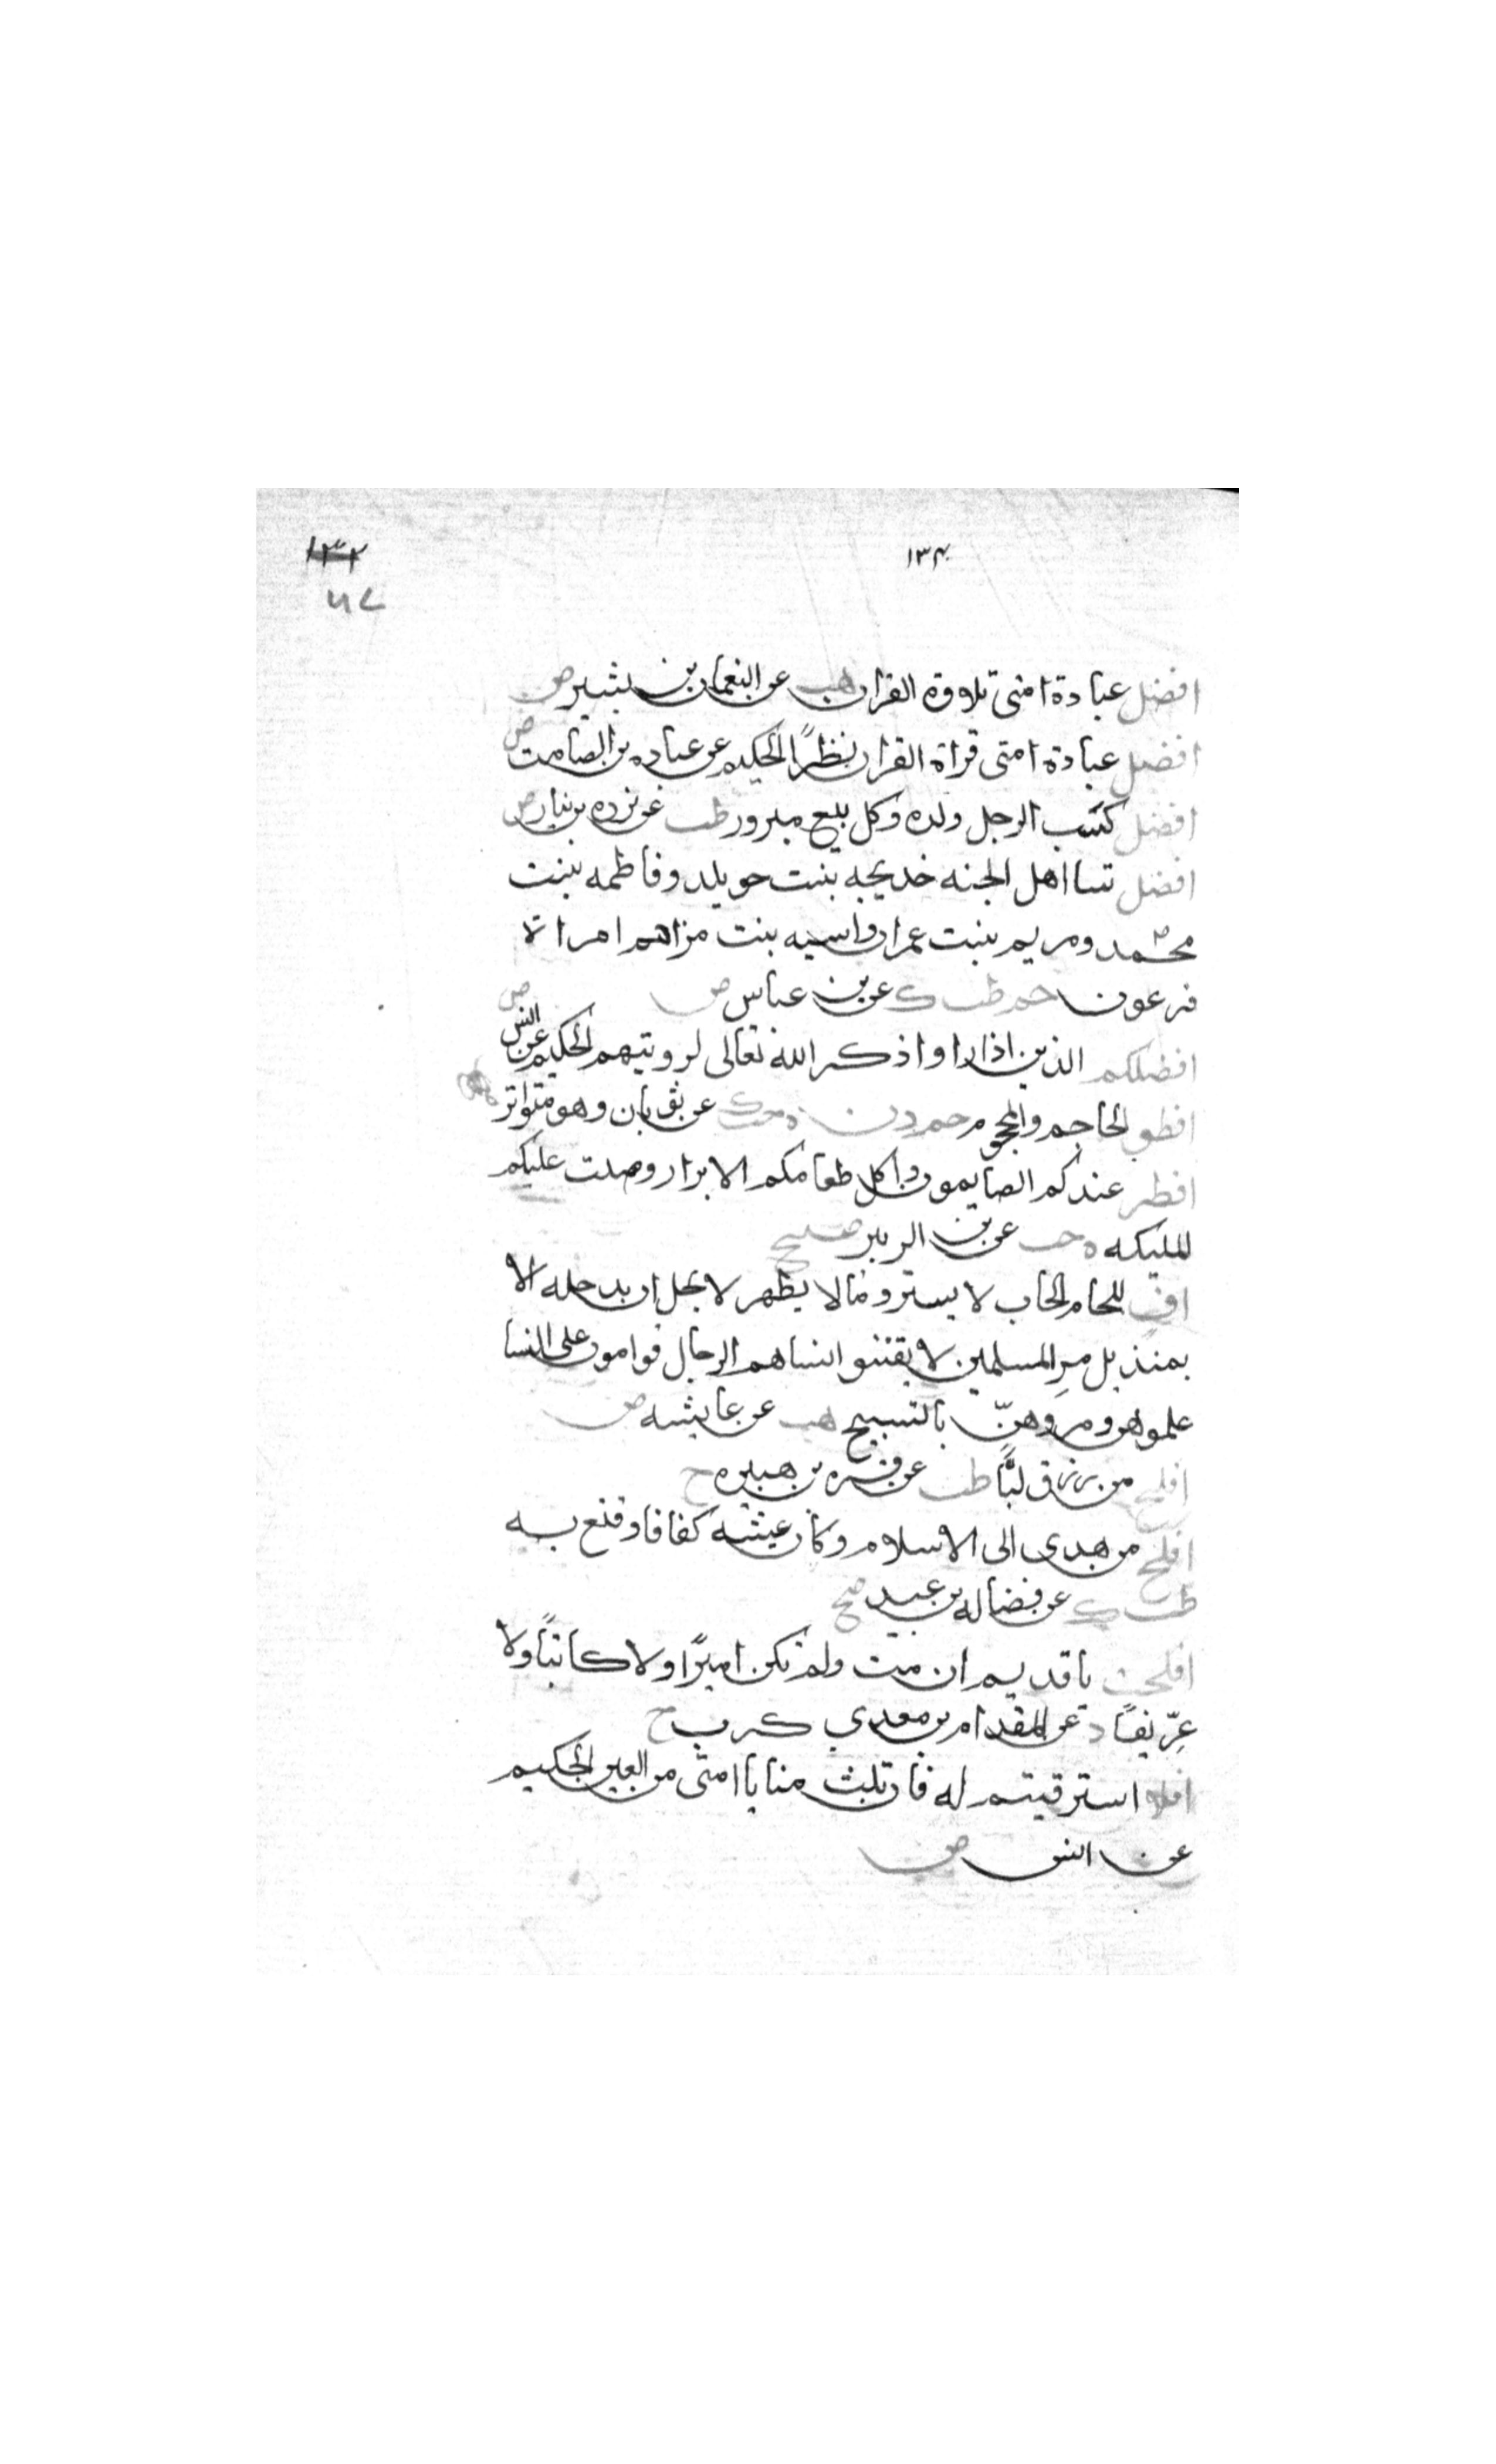 ١٣٤
١٣٢
٧٢
افضل عبادة امتى تلاوة القران هب عن النعمان بن بشير ض
افضل عبادة امتى قراة القران نظرًا الحكيم عن عباده بن الصامت ض
افضل كسب الرجل ولده وكل بيع مبرور طب عن برده بن نيار ض
افضل نسا اهل الجنه خديجه بنت خويلد وفاطمه بنت
محمد ومريم بنت عمران واسيه بنت مزاهم امراة
فرعون حم طب ك عن بن عباس ض
افضلكم الذين اذا راوا ذكر الله تعالى لرويتهم الحكيم عن انس ض
افطر الحاجم والمحجوم حم د ن ه حب ك عن ثوبان وهو متواتر
افطر عندكم الصايمون واكل طعامكم الابرار وصلت عليكم
المليكه ه حب عن بن الزبير صحيح
اف للحمام الحجاب لا يستر وما لا يطهر لا يحل ان يدخله الا
بمنديل مر المسلمين لا يفتنوا نساهم الرجال قوامون على النسا
علموهن ومروهنّ بالتسبيح هب عن عايشه ض
افلح من رزق لبًّا طب عن قره بن هبيره ح
افلح من هدى الى الاسلام وكان عيشه كفافا وقنع به
طب ك عن فضاله بن عبيد صح
افلحت ياقديم ان مت ولم تكن اميرًا ولا كاتبًا ولا
عرّيفًا د عن المقدام بن معدي كرب ح
افلا استرقيتم له فان ثلث منايا امتى من العين الحكيم
عن انس ض